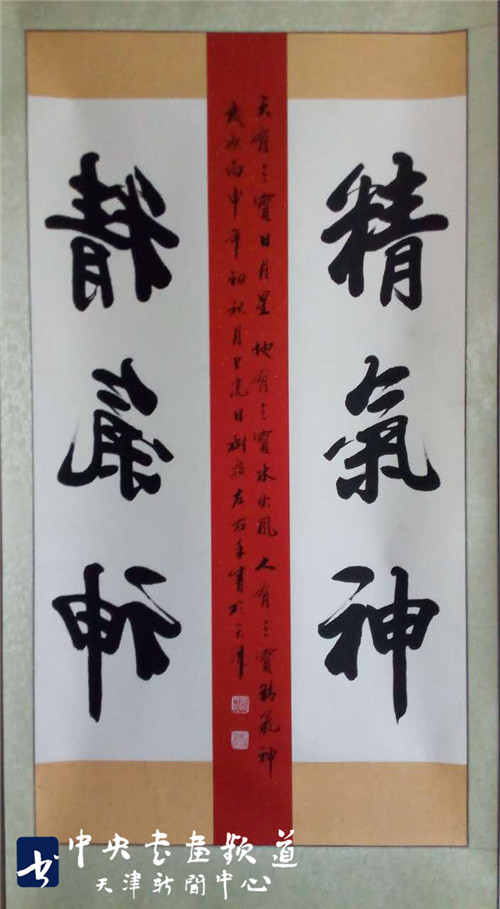 精氣神
天有三寶日月星 地有三寶水火風 人有三寶精氣神
歲次丙申年初秋月上浣日樹左右手書於天津
精氣神
中央书畫频道
天津新聞中心